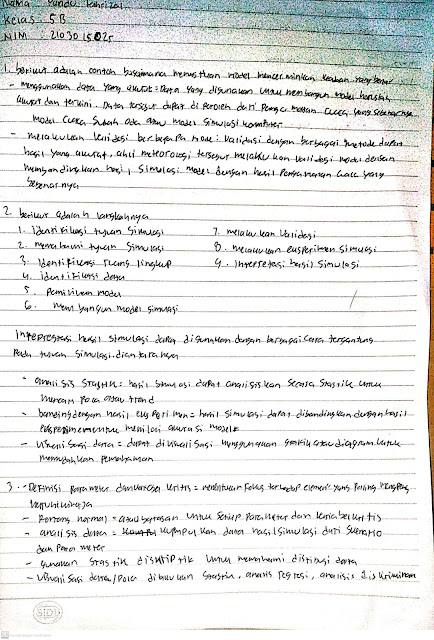 Nama : Pandu Fahrizal
Kelas : 5B
NIM : 2103015025
1. berikut adalah contoh bagaimana memastikan model mencerminkan keadaan yang benar
- menggunakan data yang akurat = Data yang digunakan untuk membangun model haruslah
akurat dan terkini. Data tersebut dapat di peroleh dari Pengamatan Cuaca yang sebenarnya
model Cuaca sudah ada atau model simulasi komputer
- melakukan Validasi berbagai metode dapat
hasil yang akurat, ahli meteorologi tersebut melakukan validasi model dengan
membandingkan hasil simulasi model dengan hasil Pengamatan Cuaca yang
sebenarnya
2. berikut adalah langkahnya
1. Identifikasi tujuan simulasi
2. memahami tujuan simulasi
3. Identifikasi ruang lingkup
4. identifikasi data
5. Pemilihan model
6. membangun model simulasi
7. melakukan Validasi
8. melakukan eksperimen simulasi
9. Interpretasi hasil simulasi
Interpretasi hasil simulasi dapat digunakan dengan berbagai cara tergantung
Pada tujuan simulasi diantaranya
- analisis statistik = hasil simulasi dapat analisiskan secara statistik untuk
mencari pola atau trend
- banding dengan hasil eksperimen = hasil simulasi dapat dibandingkan dengan hasil
eksperimen untuk menilai akurasi model
- Visualisasi data = dapat divisualisasi menggunakan grafik atau diagram untuk
memudahkan pemahaman
3. - Definisi Parameter dan variabel kritis = menentukan fokus terhadap elemen yang Paling
- Rentang normal = atau batasan untuk setiap Parameter dan variabel kritis
- analisis data = kumpulkan data hasil simulasi dari skenario
dan Parameter
- gunakan statistik diskriptik untuk memahami distribusi data
- Visualisasi data/pola dilakukan grafik, analisis regresi, analisis diskriminan